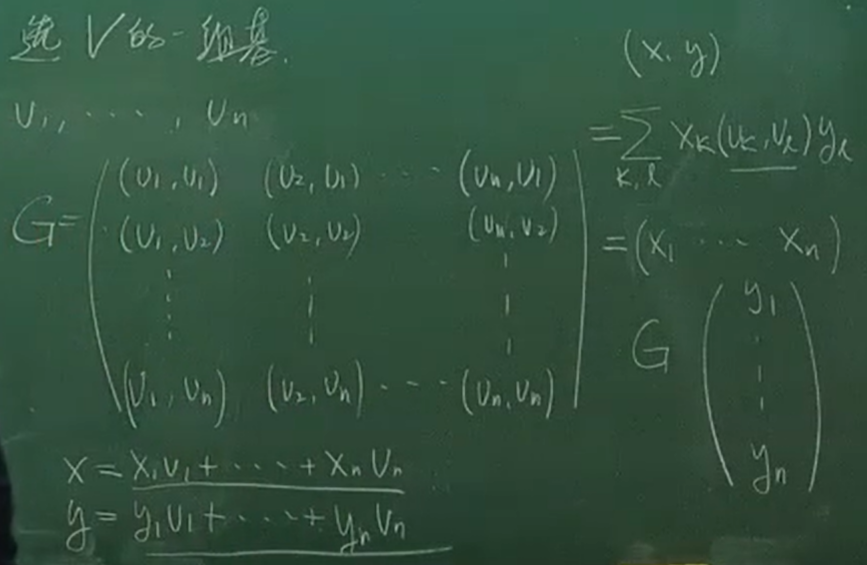 選 V 的一組基.
v₁, ⋯ , vₙ
G = ( (v₁, v₁) (v₂, v₁) ⋯ (vₙ, v₁)
(v₁, v₂) (v₂, v₂) (vₙ, v₂)
⋮ ⋮ ⋮
(v₁, vₙ) (v₂, vₙ) ⋯ (vₙ, vₙ) )
x = x₁v₁ + ⋯ + xₙvₙ
y = y₁v₁ + ⋯ + yₙvₙ
(x, y)
= ∑ xₖ(vₖ, vₗ)yₗ
k, l
= (x₁ ⋯ xₙ)
G ( y₁
⋮
yₙ )